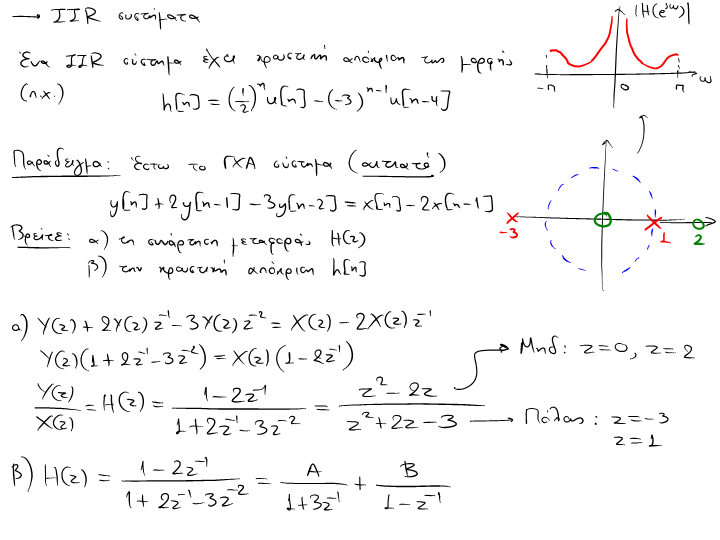 → IIR συστήματα
|H(e^jω)|
Ένα IIR σύστημα έχει κρουστική απόκριση της μορφής
(π.χ.) h[n] = (1/2)^n u[n] - (-3)^(n-1) u[n-4]
-π 0 π ω
Παράδειγμα: Έστω το ΓΧΑ σύστημα (αιτιατό)
y[n] + 2y[n-1] - 3y[n-2] = x[n] - 2x[n-1]
-3 1 2
Βρείτε: α) τη συνάρτηση μεταφοράς H(z)
β) την κρουστική απόκριση h[n]
α) Y(z) + 2Y(z)z^-1 - 3Y(z)z^-2 = X(z) - 2X(z)z^-1
Y(z)(1 + 2z^-1 - 3z^-2) = X(z)(1 - 2z^-1)
Μηδ: z=0, z=2
Y(z)/X(z) = H(z) = (1 - 2z^-1)/(1 + 2z^-1 - 3z^-2) = (z^2 - 2z)/(z^2 + 2z - 3)
Πόλοι: z=-3
z=1
β) H(z) = (1 - 2z^-1)/(1 + 2z^-1 - 3z^-2) = A/(1 + 3z^-1) + B/(1 - z^-1)